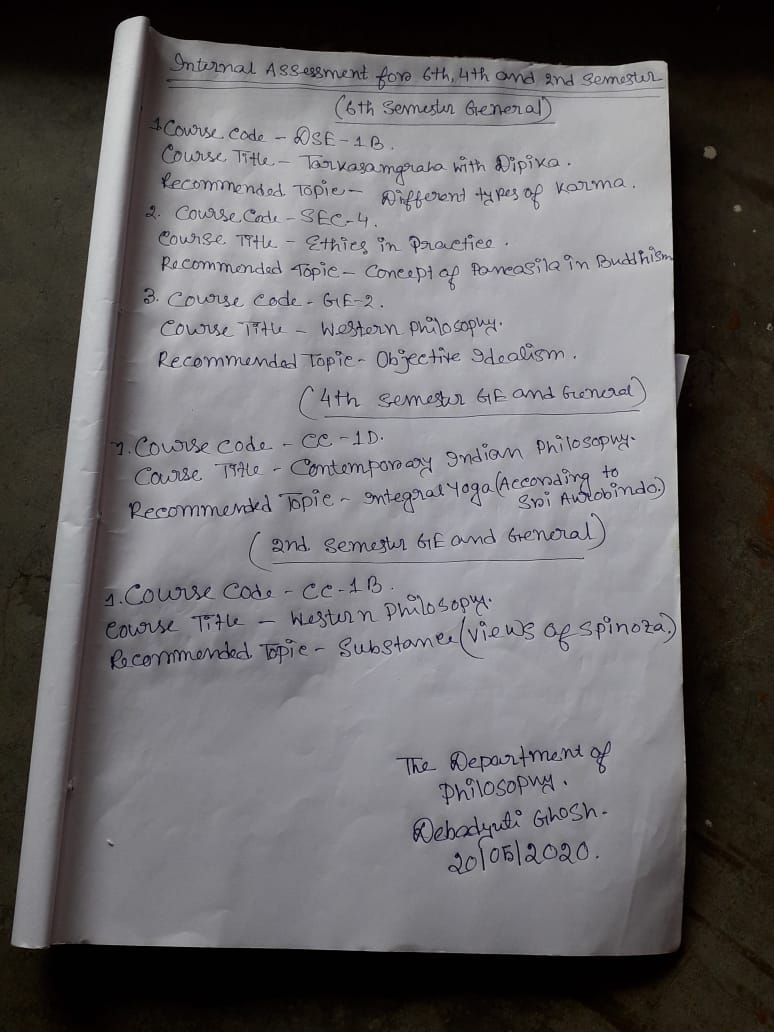 Internal Assessment for 6th, 4th and 2nd Semester
(6th Semester General)
1. Course Code - DSE-1B.
Course Title - Tarkasamgraha with Dipika.
Recommended Topic - Different types of Karma.
2. Course Code - SEC-4.
Course Title - Ethics in Practice.
Recommended Topic - Concept of Pancasila in Buddhism
3. Course Code - GE-2.
Course Title - Western Philosophy.
Recommended Topic - Objective Idealism.
(4th Semester GE and General)
1. Course Code - CC-1D.
Course Title - Contemporary Indian Philosophy.
Recommended Topic - Integral Yoga (According to
Sri Aurobindo)
(2nd Semester GE and General)
1. Course Code - CC-1B.
Course Title - Western Philosopy.
Recommended Topic - Substance (views of Spinoza)
The Department of
Philosophy.
Debadyuti Ghosh.
20/05/2020.